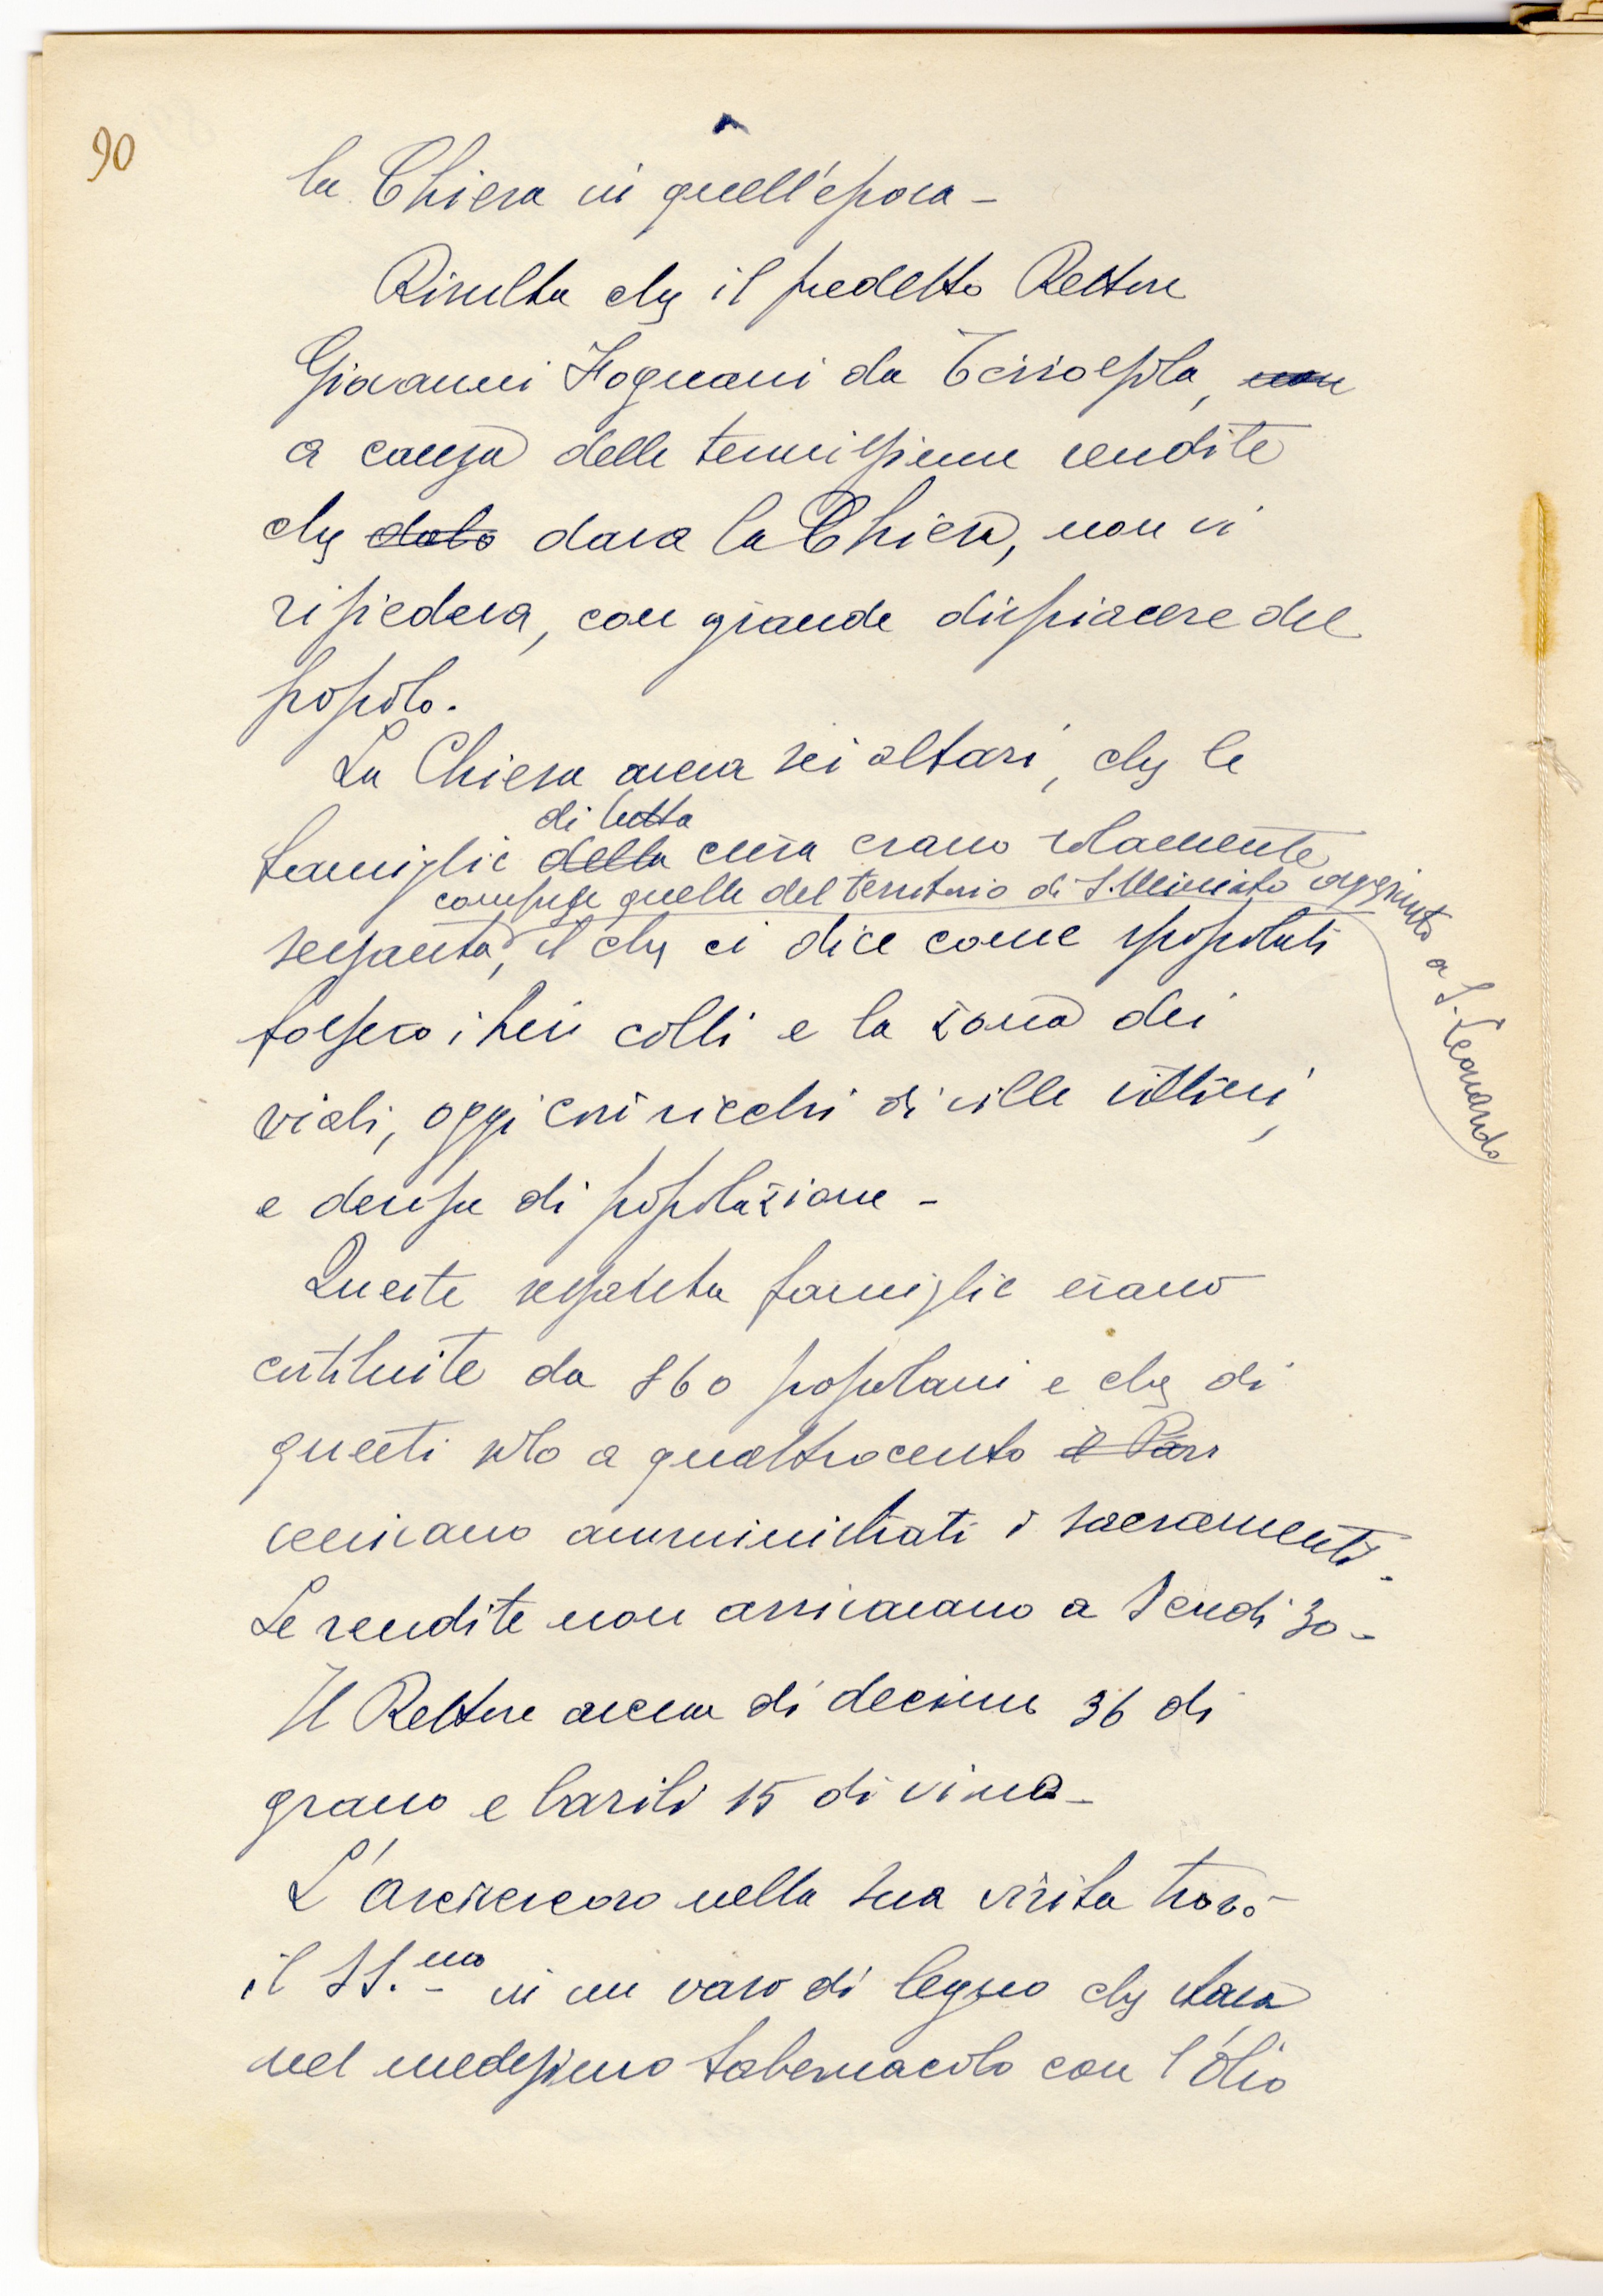 90
la Chiesa in quell'epoca -
Risulta che il predetto Rettore
Giovanni Fognani da Terrossola, non
a causa delle tenuissime rendite
che dato dava la Chiesa, non vi
risiedeva, con grande dispiacere del
popolo.
La Chiesa aveva sei altari, che le
di tutta
famiglie della cura erano solamente
comprese quelle del territorio di S. Miniato aggiunto a S. Leonardo
sessanta, il che ci dice come spopolati
fossero i bei colli e la zona dei
viali, oggi così ricchi di ville villini,
e densa di popolazione -
Queste sessanta famiglie erano
costituite da 860 popolani e che di
questi solo a quattrocento il Parr
venivano amministrati i sacramenti.
Le rendite non arrivavano a Scudi 30 -
Il Rettore aveva di decime 36 di
grano e barili 15 di vino -
L'Arcivescovo nella sua visita trovò
il SS.mo in un vaso di legno che stava
nel medesimo tabernacolo con l'olio